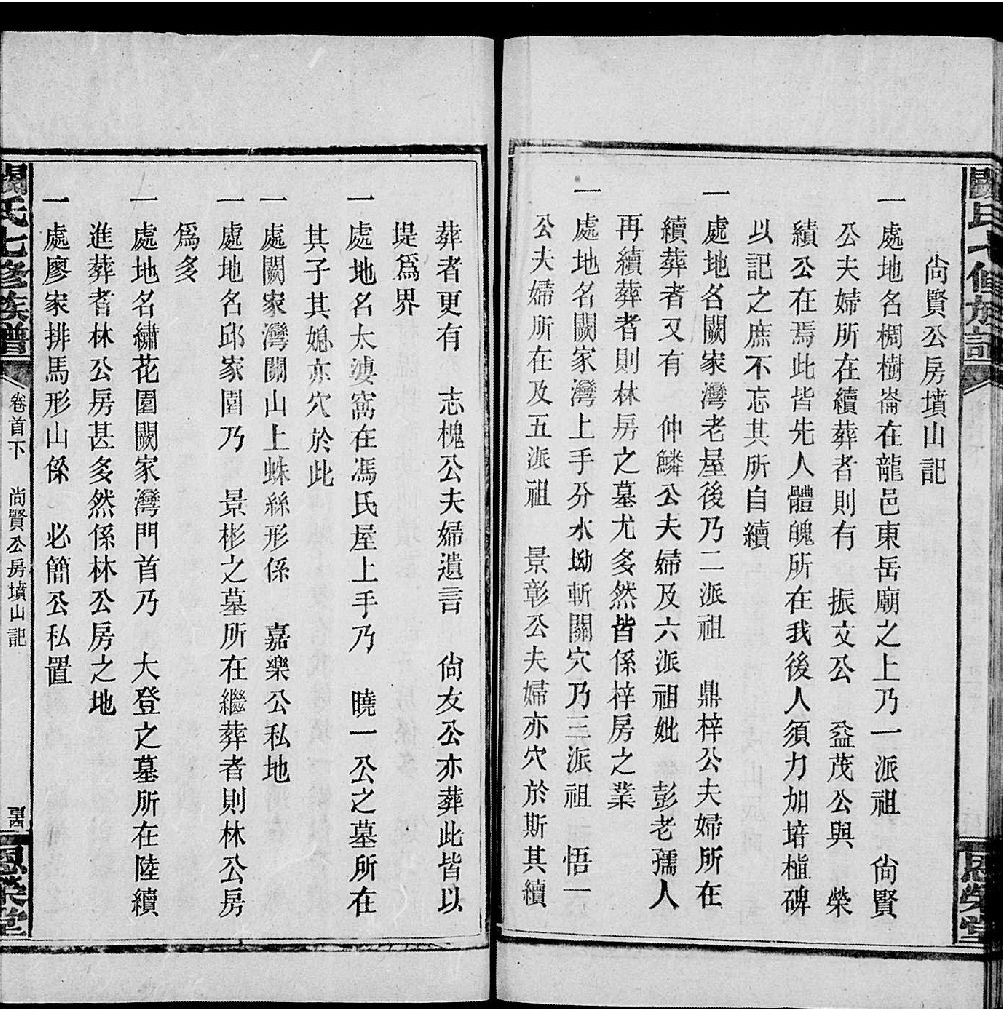 尙賢公房墳山記
一處地名椆樹崙在龍邑東岳廟之上乃一派祖 尙賢
公夫婦所在續葬者則有 振文公 益茂公與 榮
績公在焉此皆先人體魄所在我後人須力加培植碑
以記之庶不忘其所自續
一處地名闕家灣老屋後乃二派祖 鼎梓公夫婦所在
續葬者又有 仲鱗公夫婦及六派祖妣 彭老孺人
再續葬者則林房之墓尤多然皆係梓房之業
一處地名闕家灣上手分水坳斬關穴乃三派祖 悟一
公夫婦所在及五派祖 景彰公夫婦亦穴於斯其續
葬者更有 志槐公夫婦遺言 尙友公亦葬此皆以
堤爲界
一處地名太婆窩在馮氏屋上手乃 曉一公之墓所在
其子其媳亦穴於此
一處闕家灣關山上蛛絲形係 嘉樂公私地
一處地名邱家園乃 景彬之墓所在繼葬者則林公房
爲多
一處地名繡花園闕家灣門首乃 大登之墓所在陸續
進葬者林公房甚多然係林公房之地
一處廖家排馬形山係 必簡公私置
闕氏七修族譜 卷首下 尙賢公房墳山記 恩榮堂